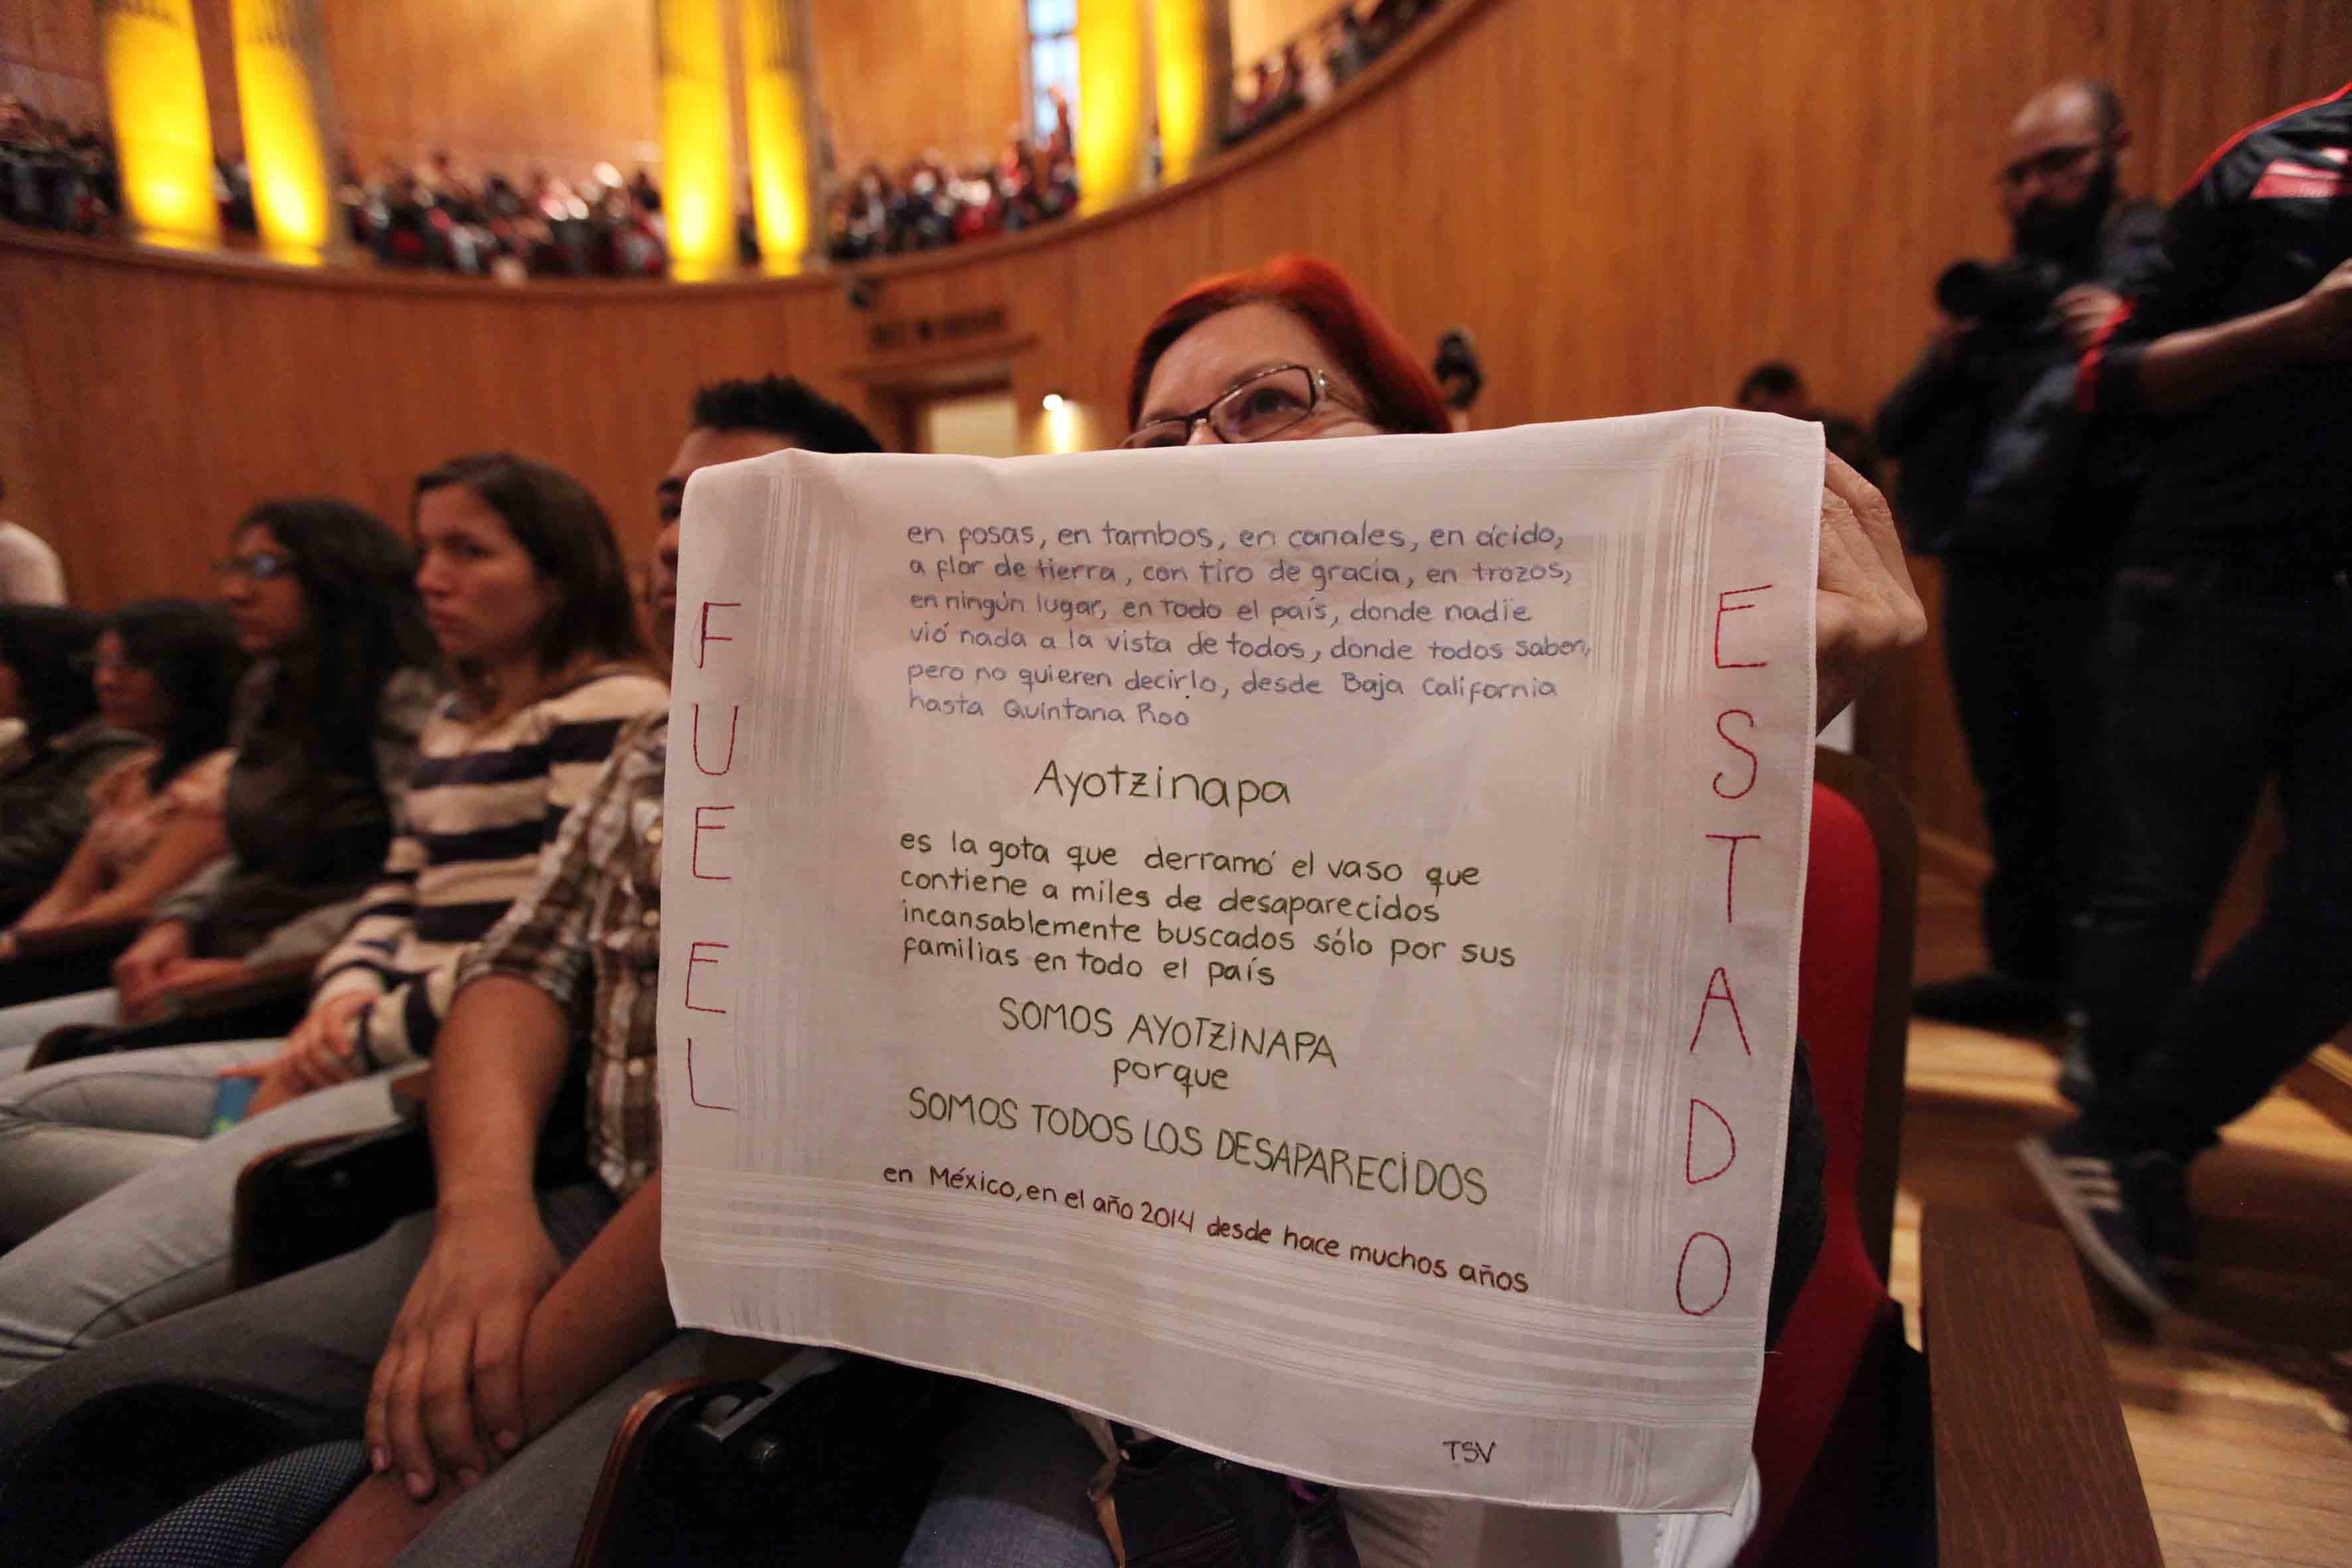 en fosas, en tambos, en canales, en ácido,
a flor de tierra, con tiro de gracia, en trozos,
en ningún lugar, en todo el país, donde nadie
vió nada a la vista de todos, donde todos saben,
pero no quieren decirlo, desde Baja California
hasta Quintana Roo
Ayotzinapa
es la gota que derramó el vaso que
contiene a miles de desaparecidos
incansablemente buscados sólo por sus
familias en todo el país
SOMOS AYOTZINAPA
porque
SOMOS TODOS LOS DESAPARECIDOS
en México, en el año 2014 desde hace muchos años
TSV
FUE EL
ESTADO